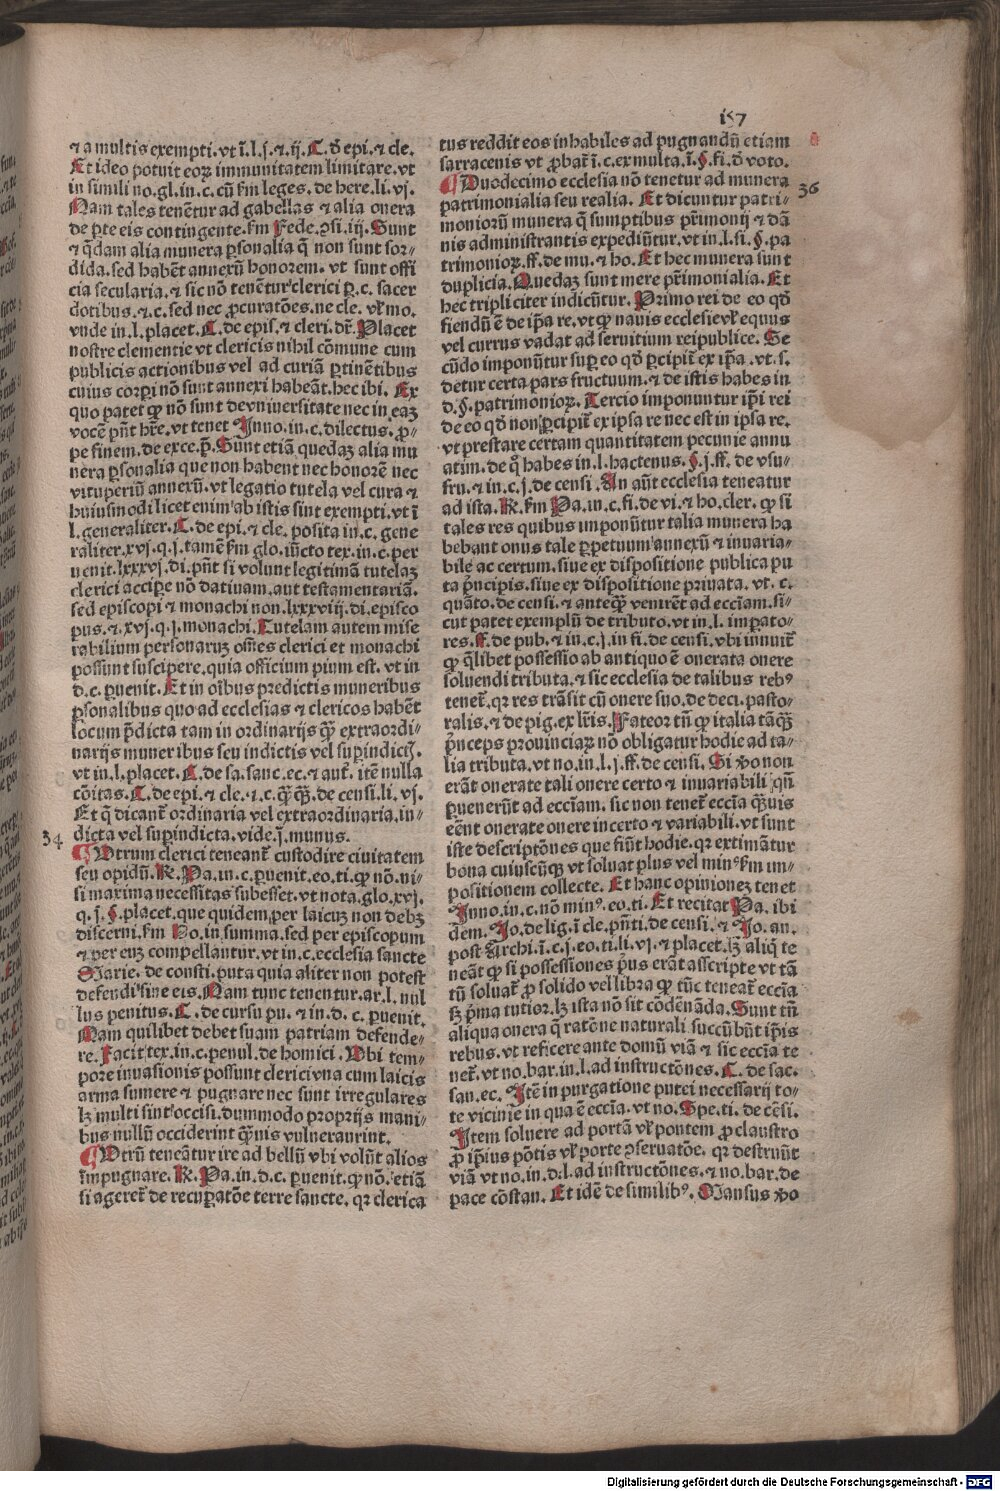 157
⁊ a multis exempti. vt ī. l. s. ⁊. ij. C. ð epi. ⁊ cle.
Et ideo potuit eoꝝ immunitatem limitare. vt
in simili no. gl. in. c. cū ẜm leges. de here. li. vj.
Nam tales tenēt̄ur ad gabellas ⁊ alia onera
de ꝑte eis contingente. ẜm Fede. ꝯsi. iij. Sunt
⁊ q̄dam alia munera ꝑsonalia q̄ non sunt sor-
dida. sed habēt annexū honorem. vt sunt offi
cia secularia. ⁊ sic nō tenēt̄ur clerici ꝑ. c. sacer
dotibus. ⁊. c. sed nec ꝓcuratōes. ne cle. vl̄ mo.
vnde in. l. placet. C. de epis. ⁊ cleri. dr̄. Placet
nostre clementie vt clericis nihil cōmune cum
publicis actionibus vel ad curiā ꝑtinētibus
cuius corꝑi nō sunt annexi habeāt. hec ibi. Ex
quo patet ꝙ nō sunt de vniuersitate nec in eaꝫ
vocē pn̄t hr̄e. vt tenet Inno. in. c. dilectus. ꝓ-
pe finem. de exce. p̄. Sunt etiā quedaꝫ alia mu
nera ꝑsonalia que non habent nec honorē nec
vituperiū annexū. vt legatio tutela vel cura ⁊
huiusmodi licet enim ab istis sint exempti. vt ī
l. generaliter. C. de epi. ⁊ cle. posita in. c. gene
raliter. xvj. q. j. tamē ẜm glo. iūcto tex. in. c. per
uenit. lxxxvj. di. pn̄t si volunt legitimā tutelaꝫ
clerici acciꝑe nō datiuam. aut testamentariā.
sed episcopi ⁊ monachi non. lxxxviij. di. episco
pus. ⁊. xvj. q. j. monachi. Tutelam autem mise
rabilium personaruꝫ om̄es clerici et monachi
possunt suscipere. quia officium pium est. vt in
d. c. ꝑuenit. Et in oībus predictis muneribus
ꝑsonalibus quo ad ecclesias ⁊ clericos habēt
locum p̄dicta tam in ordinarijs q̄ꝫ extraordi-
narijs muneribus seu indictis vel suꝑindictꝭ.
vt in. l. placet. C. de sa. sanc. ec. ⁊ aut̄. itē nulla
cōitas. C. de epi. ⁊ cle. ⁊. c. q̄ꝫ q̄ꝫ. de censi. li. vj.
Et q̄ dicant̄ ordinaria vel extraordinaria. in-
dicta vel suꝑindicta. vide. j. munus.
34
¶ Vtrum clerici teneant̄ custodire ciuitatem
seu opidū. R. Pa. in. c. ꝑuenit. eo. ti. ꝙ nō. ni-
si maxima necessitas subesset. vt nota. glo. xvj.
q. j. §. placet. que quidem per laicuꝫ non debꝫ
discerni. ẜm Ho. in summa. sed per episcopum
⁊ per euꝫ compellantur. vt in. c. ecclesia sancte
Marie. de consti. puta quia aliter non potest
defendi sine eis. Nam tunc tenentur. ar. l. nul
lus penitus. C. de cursu pu. ⁊ in. d. c. ꝑuenit.
Nam quilibet debet suam patriam defende-
re. Facit tex. in. c. penul. de homici. Vbi tem-
pore inuasionis possunt clerici vna cum laicis
arma sumere ⁊ pugnare nec sunt irregulares
lꝫ multi sint occisi. dummodo proprijs mani-
bus nullū occiderint q̄ꝫuis vulnerauerint.
¶ Vtrū teneātur ire ad bellū vbi volūt alios
īmpugnare. R. Pa. in. d. c. ꝑuenit. ꝙ nō. etiā
si ageret̄ de recuꝑatōe terre sancte. qꝛ clerica
tus reddit eos inhabiles ad pugnandū etiam
sarracenis vt ꝓbat̄ ī. c. ex multa. ī. §. fi. ð voto.
36
¶ Duodecimo ecclesia nō tenetur ad munera
patrimonialia seu realia. Et dicuntur patri-
moniorū munera q̄ sumptibus pr̄imonij ⁊ dā
nis administrantis expediūtur. vt in. l. fi. §. pa
trimonioꝝ. ff. de mu. ⁊ ho. Et hec munera sunt
duplicia. Quedaꝫ sunt mere pr̄imonialia. Et
hec tripliciter indicūtur. Primo rei de eo qð
fiendū ē de ip̄a re. vt ꝙ nauis ecclesie vl̄ equus
vel currus vadat ad seruitium reipublice. Se
cūdo imponūtur suꝑ eo qð ꝑcipit̄ ex ip̄a. vt. s.
detur certa pars fructuum. ⁊ de istis habes in
d. §. patrimonioꝝ. Tercio imponuntur ip̄i rei
de eo qð non ꝑcipit̄ ex ipsa re nec est in ipsa re.
vt prestare certam quantitatem pecunie annu
atim. de q̊ habes in. l. hactenus. §. j. ff. de vsu-
fru. ⁊ in. c. j. de censi. An aūt ecclesia teneatur
ad ista. R. ẜm Pa. in. c. fi. de vi. ⁊ ho. cler. ꝙ si
tales res quibus imponūtur talia munera ha
bebant onus tale ꝑpetuum annexū ⁊ inuaria-
bile ac certum. siue ex dispositione publica pu
ta p̄ncipis. siue ex dispositione priuata. vt. c.
quāto. de censi. ⁊ anteq̄ꝫ venirēt ad ecciam. si-
cut patet exemplū de tributo. vt in. l. imperato-
res. ff. de pub. ⁊ in. c. j. in fi. de censi. vbi innuit̄
ꝙ q̄libet possessio ab antiquo ē onerata onere
soluendi tributa. ⁊ sic ecclesia de talibus rebꝰ
tenet̄. qꝛ res trāsit cū onere suo. de deci. pasto-
ralis. ⁊ de pig. ex lr̄is. Fateor tn̄ ꝙ italia tāq̄ꝫ
p̄nceps prouinciaꝝ nō obligatur hodie ad ta-
lia tributa. vt no. in. l. j. ff. de censi. Si v̊o non
erāt onerate tali onere certo ⁊ inuariabili qn̄
ꝑuenerūt ad ecciam. sic non tenet̄ eccīa q̄ꝫuis
eēnt onerate onere incerto ⁊ variabili. vt sunt
iste descriptōnes que fiūt hodie. qꝛ extimātur
bona cuiuscūqꝫ vt soluat plus vel minꝰ ẜm im-
positionem collecte. Et hanc opinionez tenet
Inno. in. c. nō minꝰ. eo. ti. Et recitat Pa. ibi
dem. Jo. de lig. ī cle. pn̄ti. de censi. ⁊ Jo. an.
post Archi. ī. c. j. eo. ti. li. vj. ⁊ placet. lꝫ aliq̄ te
neāt ꝙ si possessiones p̄us erāt asscripte vt tā
tū soluat̄ ꝓ solido vel libra ꝙ tūc teneat̄ eccīa
sꝫ p̄ma tutior. lꝫ ista nō sit cōdēnāda. Sunt tn̄
aliqua onera q̄ ratōne naturali succūbūt ip̄is
rebus. vt reficere ante domū viā ⁊ sic eccīa te
net̄. vt no. bar. in. l. ad instructōnes. C. de sac.
san. ec. Itē in purgatione putei necessarij to-
te vicinie in qua ē eccīa. vt no. Spe. ti. de cēsi.
Item soluere ad portā vl̄ pontem ꝓ claustro
ꝓ ip̄ius pōtis vl̄ porte ꝯseruatōe. qꝛ destruūt
viā vt no. in. d. l. ad instructōnes. ⁊ no. bar. de
pace cōstan. Et idē de similibꝰ. Mansus v̊o
Digitalisierung gefördert durch die Deutsche Forschungsgemeinschaft - DFG